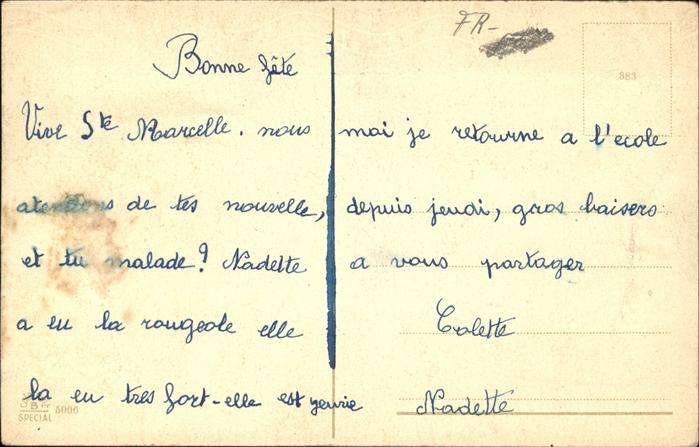 FR-
383
Bonne fête
Vive Ste Marcelle. nous
atendons de tes nouvelle,
et tu malade? Nadette
a eu la rougeole elle
la eu tres fort-elle est geurie
moi je retourne a l'ecole
depuis jeudi, gros baisers
a vous partager
Colette
Nadette
5006
SPECIAL